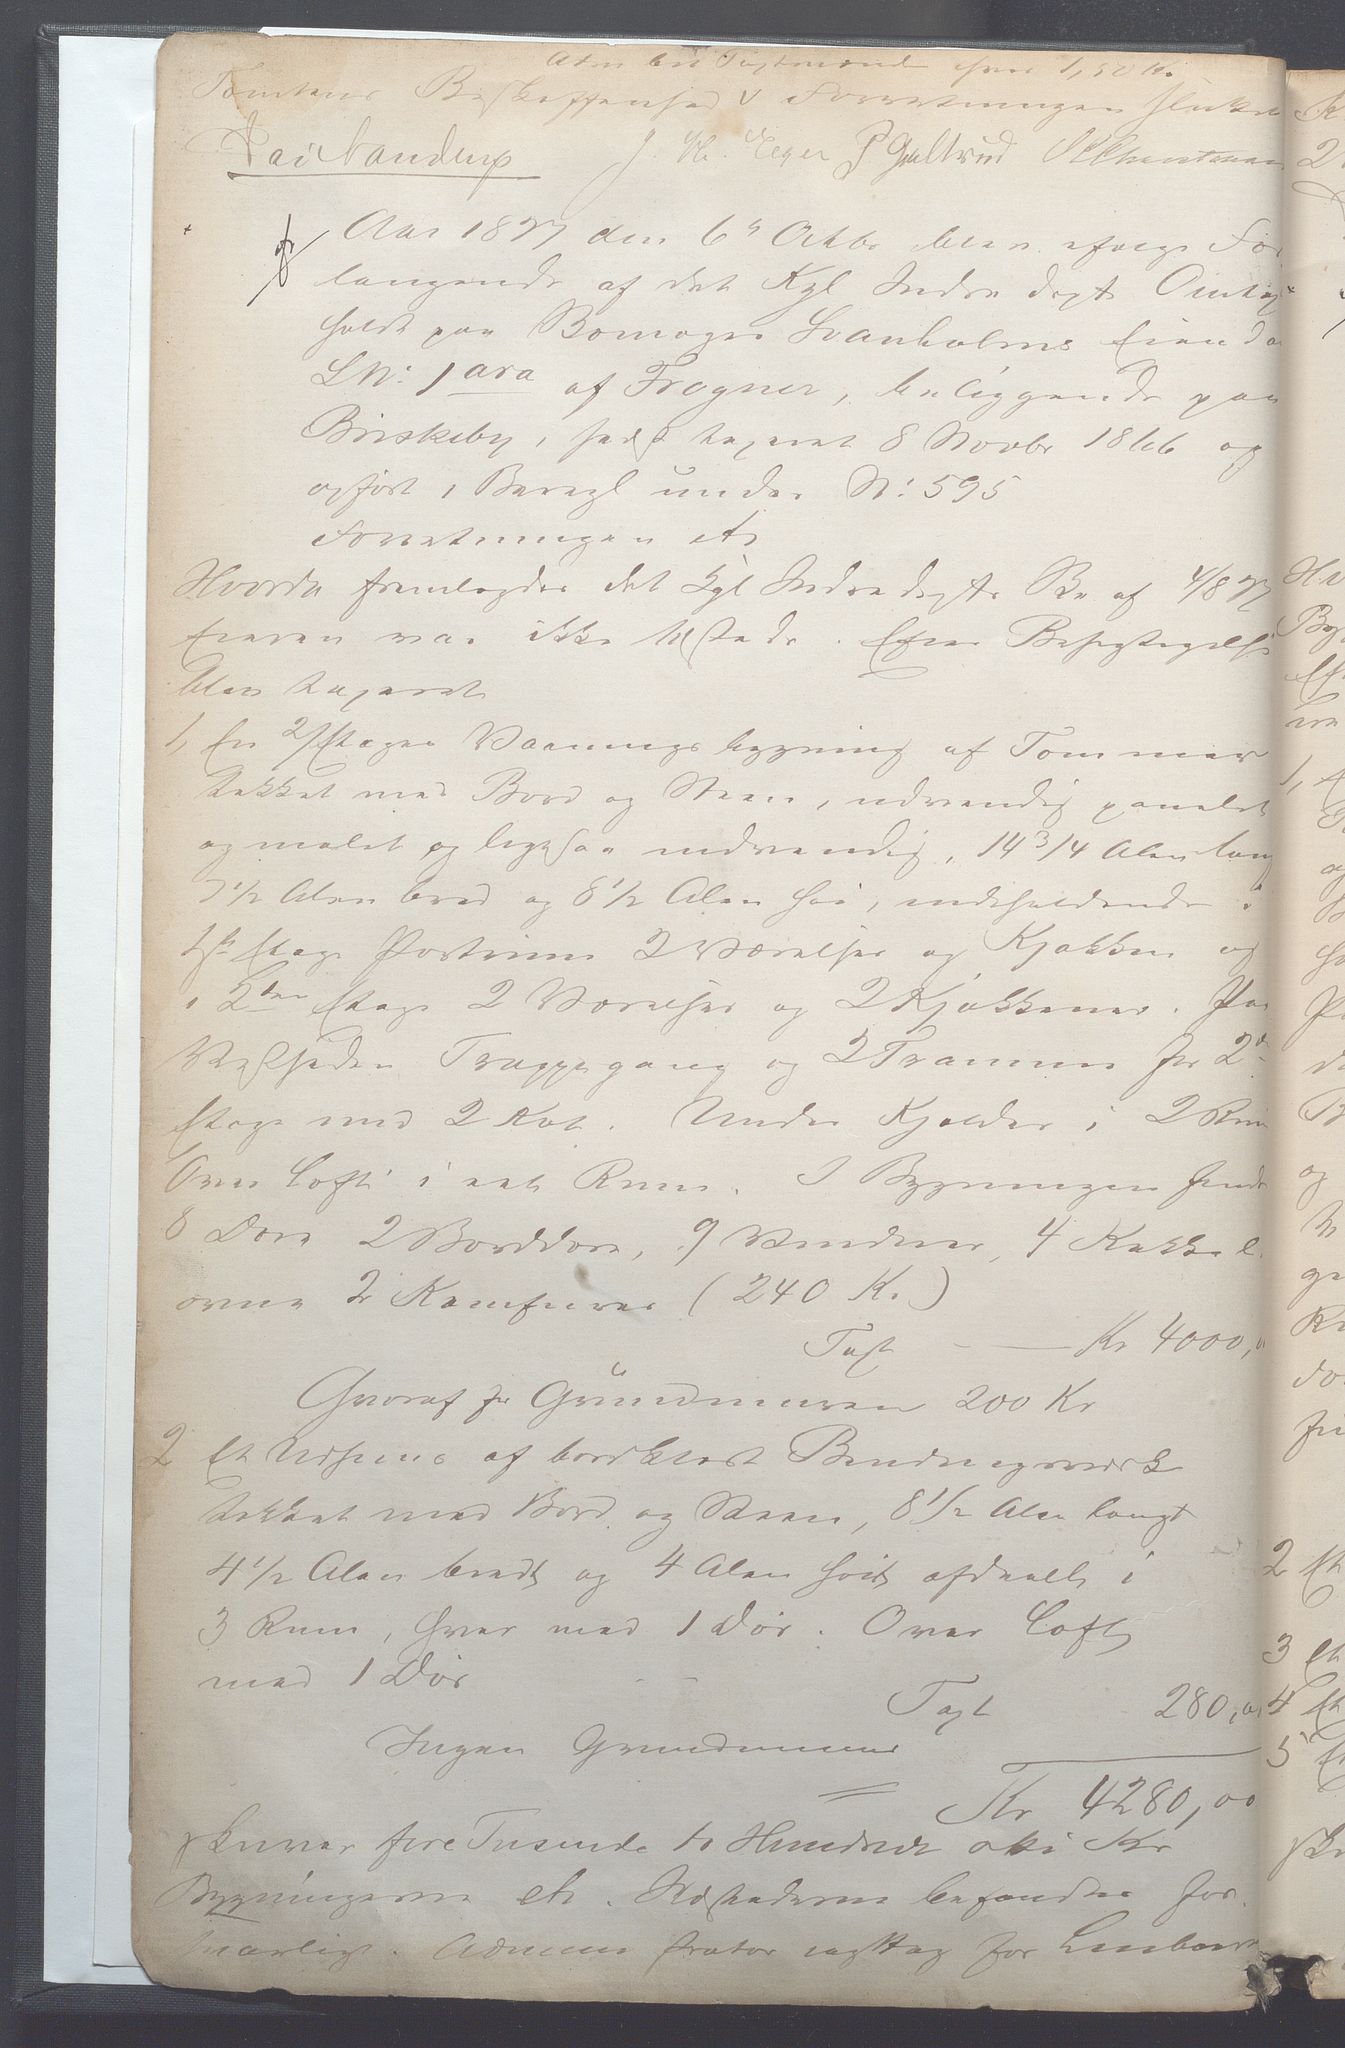 Aten bei Taxtmænd hver 1,50 Kr
Tomtens Beskaffenhed v Forretningen sluttet
Paid Sandrup J. Chr. Eger P Gultrud
Aar 1877 den 6te Octbr blev efter For
langende af det Kgl Indre Dept Omtaxt
holdt paa Bomager Svanholms Eiendom
LN: 1 ara af Frogner, beliggende paa
Briskeby, sidst taxeret 8 Novbr 1866 og
opført i Brregl under N: 595
Forretningen etc
Hvorda fremlagdes det Kgl Indre Depts Br af 4/8 77
Eieren var ikke tilstede. Efter Besigtigelse
blev taxeret
1, En 2 Etages Vaaningsbygning af Tømmer
tækket med Bord og Steen, udvendig panelet
og malet og ligesaa indvendig, 14 3/4 Alen lang
7 1/2 Alen bred og 8 1/2 Alen høi, indeholdende i
1ste Etage Portrum 2 Værelser og Kjøkken og
i 2den Etage 2 Værelser og 2 Kjøkkener. Paa
Vestsiden Trappegang og 2 Trammer for 2d
Etage med 2 Kot. Under Kjelder i 2 Rum
Over Loft i eet Rum. I Bygningen findes
8 Døre 2 Borddøre, 9 Vinduer, 4 Kakkel
ovne 2 Komfurer (240 Kr.)
Taxt - Kr 4000,00
Hvoraf for Grundmuren 200 Kr
2 Et Udhuus af bordklædt Bindingsværk
tækket med Bord og Steen, 8 1/2 Alen langt
4 1/2 Alen bredt og 4 Alen høit afdeelt i
3 Rum, hver med 1 Dør. Over Loft
med 1 Dør
Taxt 280,00
Ingen Grundmuur
= Kr 4280,00
skriver fire Tusinde to Hundrede otti Kr
Bygningerne etc. Ildstederne befandtes for
svarlige.